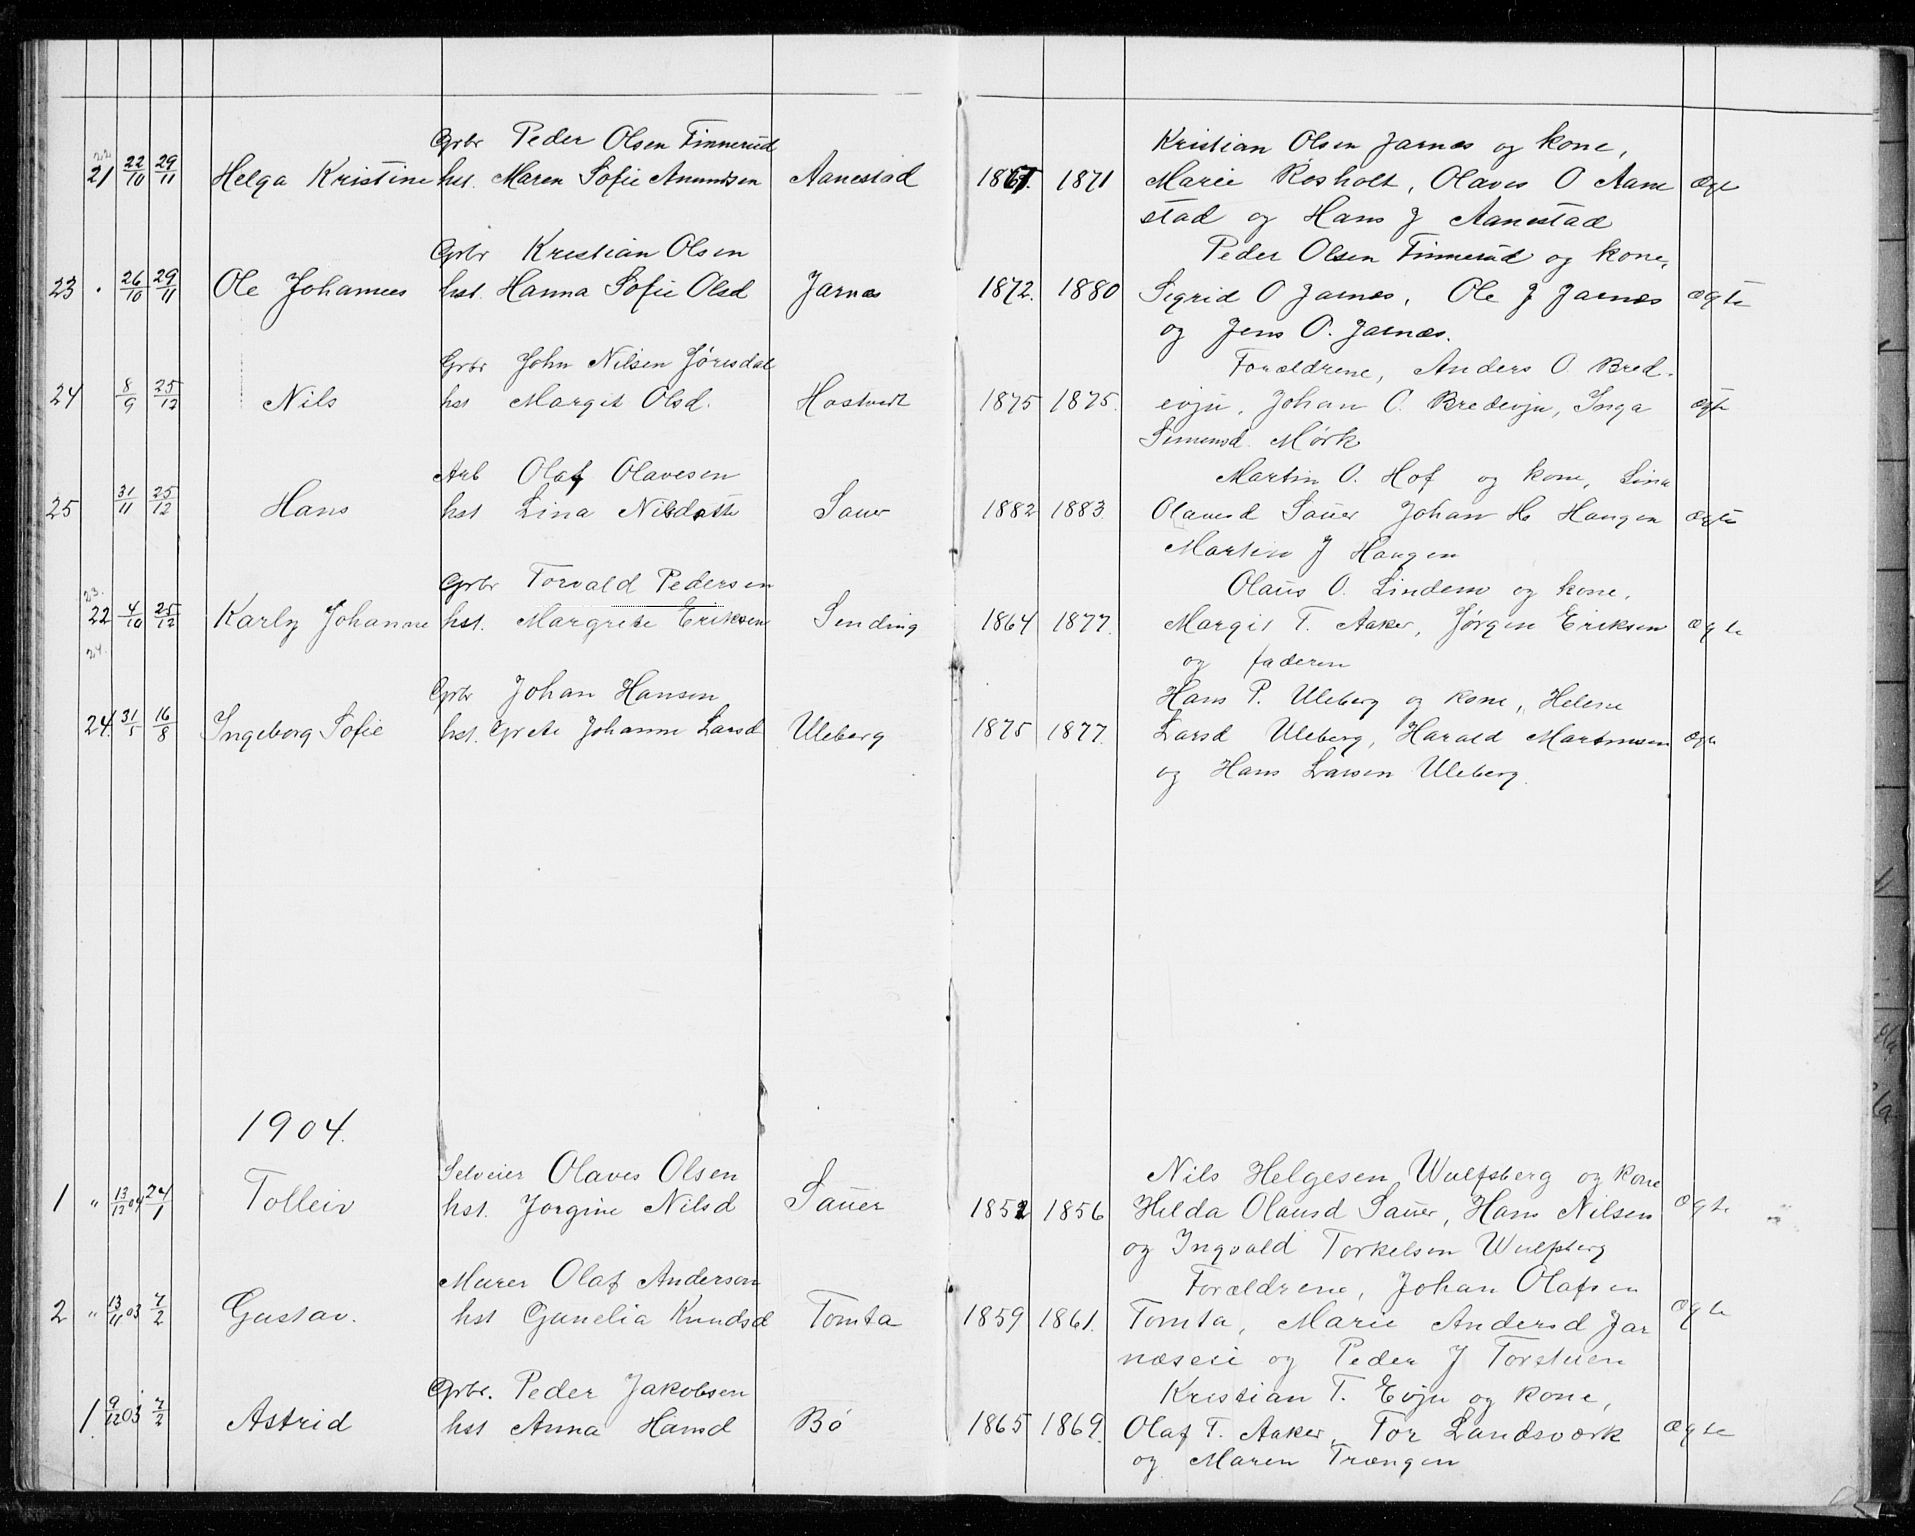 Grbr Peder Olsen Finnerud Kristian Olsen Jarnæs og kone,
22 21 22/10 29/11 Helga Kristine hst. Maren Sofie Amundsen Aanestad 1867. 1871 Marie Rosholt, Olaves O Aane Ægte
stad og Hans J Aanestad
Grbr Kristian Olsen Peder Olsen Finnerud og kone,
23 . 26/10 29/11 Ole Johannes hst. Hanna Sofie Olsd Jarnæs 1872. 1880 Sigrid O Jarnæs, Ole J Jarnæs ægte
og Jens O. Jarnæs.
Grbr John Nilsen Jørisdal Forældrene, Anders O. Bred-
24 8/9 25/12 Nils hst Margit Olsd. Hostvedt 1875 1875. evju, Johan O. Bredevju, Inga ægte
Simensd. Mørk
Arb Olaf Olavesen Martin O. Hof og kone, Lina
25 31/11 25/12 Hans hst Lina Nilsdatte Sauer 1882 1883. Olavesd Sauer Johan H. Haugen ægte
Martin J Haugen
Grbr Torvald Pedersen Olaus O. Lindem og kone,
23. 22 4/10 25/12 Karly Johanne hst. Margrete Eriksen Sending 1864 1877. Margit T. Aaker, Jørgen Eriksen ægte
24. og faderen
Grbr Johan Hansen Hans P. Uleberg og kone, Helene
24. 31/5 16/8 Ingeborg Sofie hst. Grete Johanne Larsd Uleberg 1875 1877. Larsd Uleberg, Harald Martinsen Ægte
og Hans Larsen Uleberg.
1904.
Selveier Olaves Olsen Nils Helgesen Wulfsberg og kone
1 " 13/12 04 24/1 Tolleiv hst. Jorgine Nilsd Sauer 1852 1856 Hilda Olausd Sauer, Hans Nilsen ægte
og Ingvald Torkelsen Wulfsberg
Murer Olaf Anderson Forældrene, Johan Olafsen
2 " 13/11 03 7/2 Gustav. hst Gunelia Knudsd Tomta 1859 1861. Tomta, Marie Andersd Jar ægte
næseie og Peder J Torstuen
Grbr. Peder Jakobsen Kristian T. Evju og kone,
1. 9/12 03 7/2 Astrid hst Anna Hansd Bø 1865 1869. Olaf T. Aaker, Tor Landsværk Ægte
og Maren Trængen